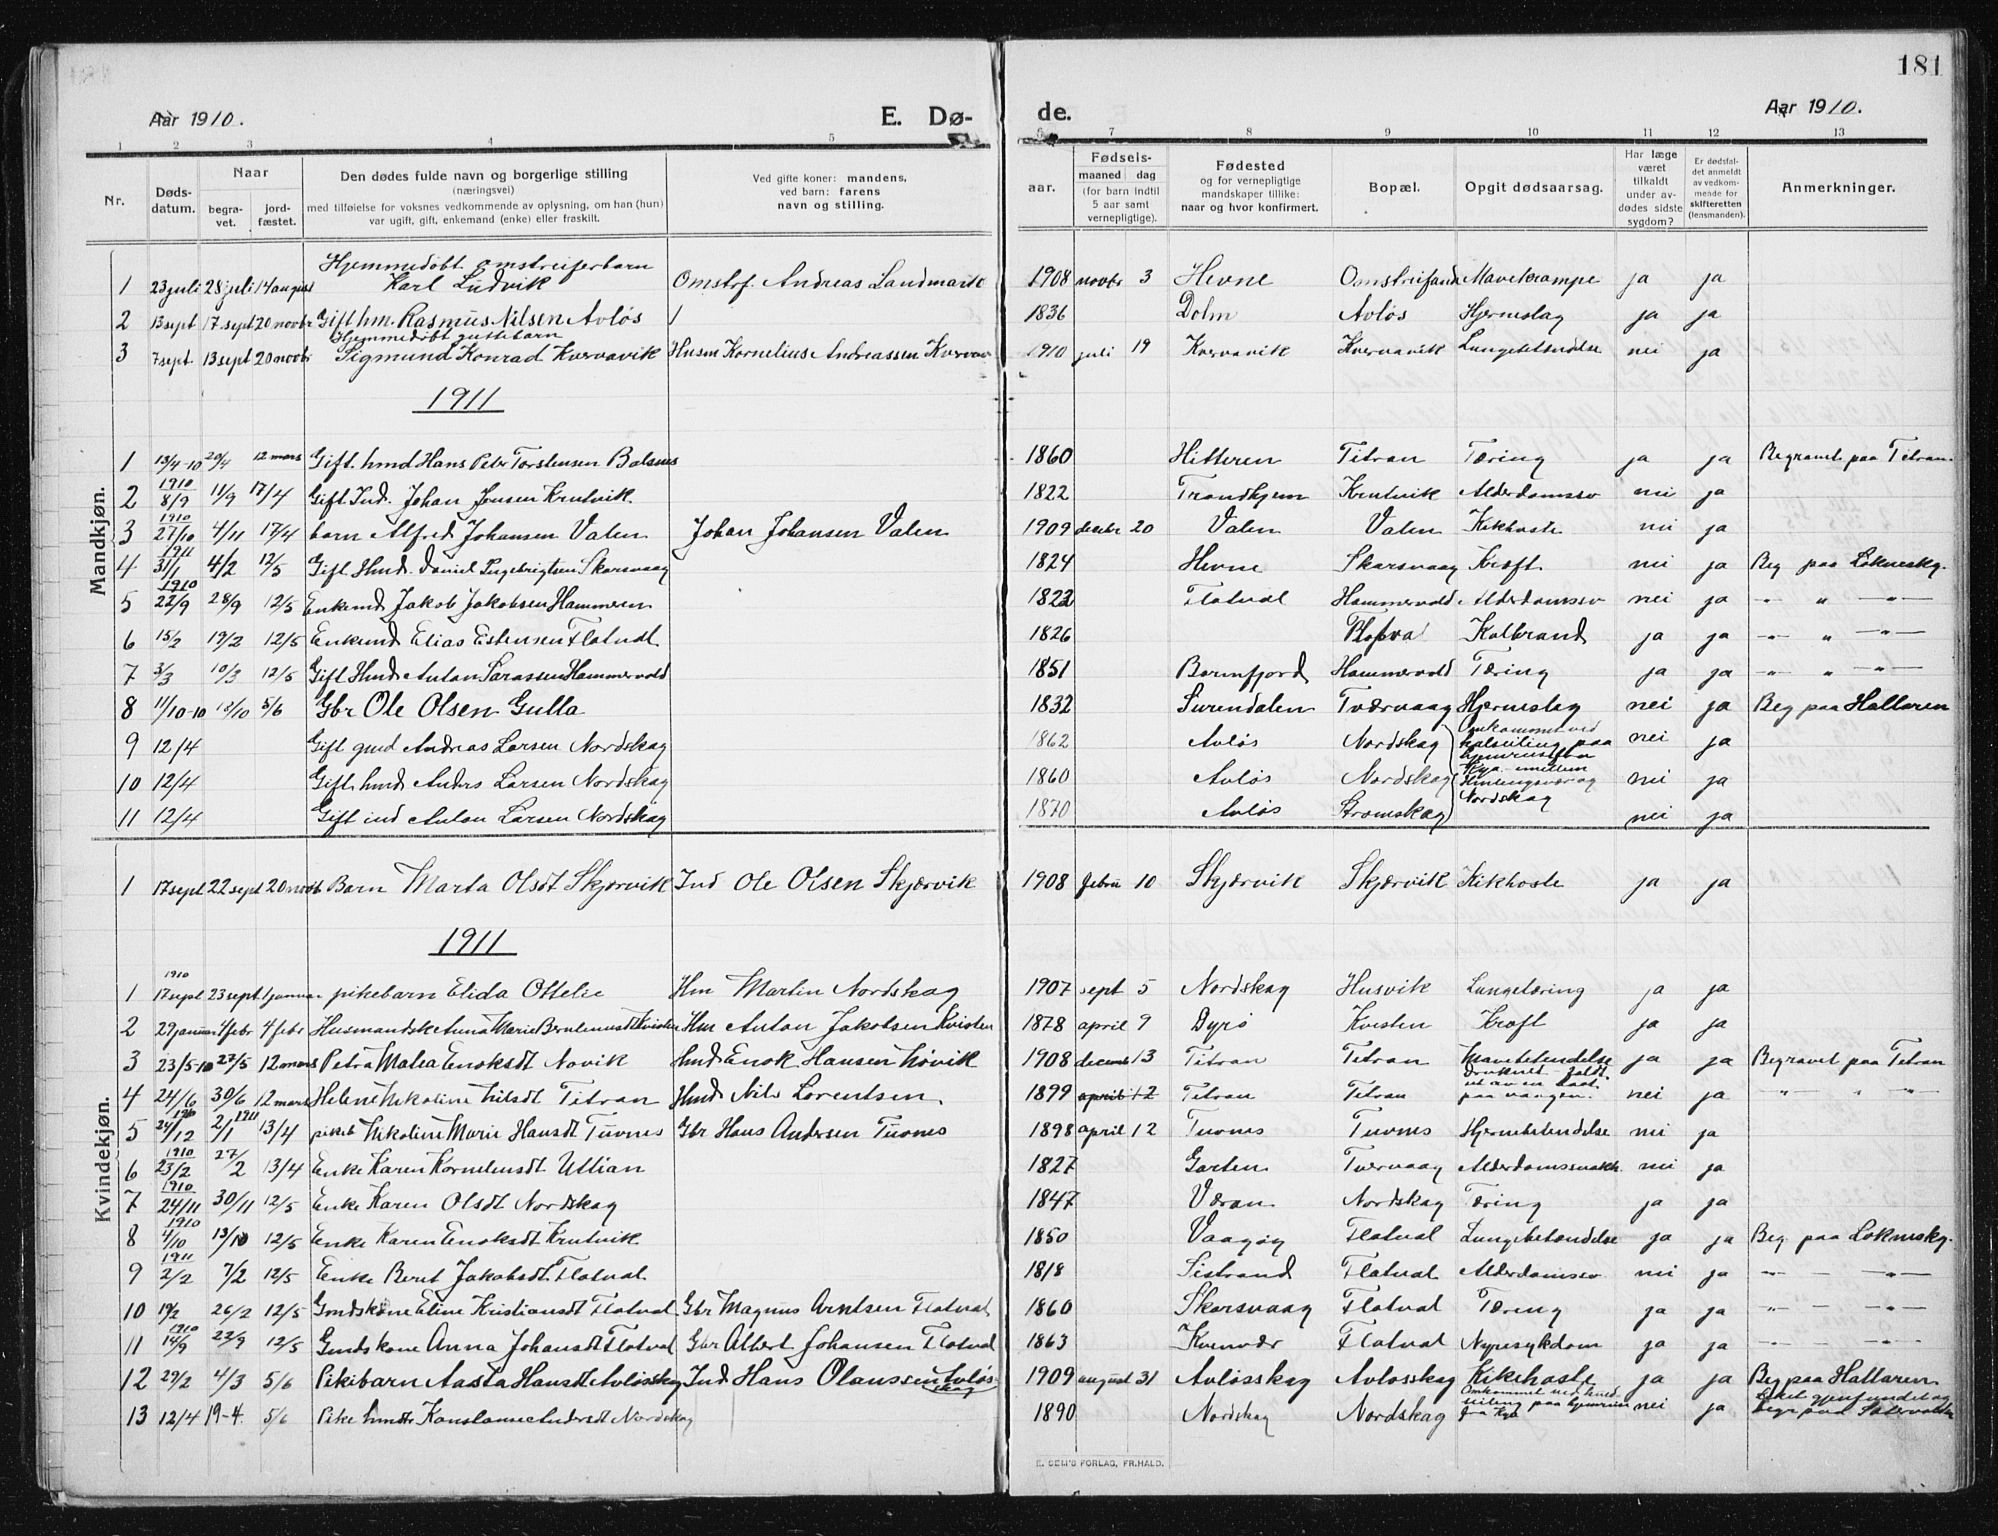 181
Aar 1910. E. Dø- de. Aar 1910.
1 2 3 4 5 6 7 8 9 10 11 12 13
Nr. Døds-datum. Naar begra-vet. jord-fæstet. Den dødes fulde navn og borgerlige stilling (næringsvei) med tilføielse for voksnes vedkommende av oplysning, om han (hun) var ugift, gift, enkemand (enke) eller fraskilt. Ved gifte koner: mandens, ved barn: farens navn og stilling. aar. Fødsels- maaned dag (for barn indtil 5 aar samt vernepligtige). Fødested og for vernepligtige mandskaper tillike: naar og hvor konfirmert. Bopæl. Opgit dødsaarsag. Har læge været tilkaldt under av-dødes sidste sygdom? Er dødsfal-det anmeldt av vedkom-mende for skifteretten (lensmanden). Anmerkninger.
Mandkjøn.
1 23 juli 28 juli 14 august Hjemmedøbt omstreiferbarn Karl Ludvik Omstrf. Andreas Landmark 1908 novbr 3 Hevne Omstreifande Mavekrampe ja ja
2 13 sept 17 sept 20 novbr Gift hm. Rasmus Nilsen Avløs 1836 Dolm Avløs Hjerneslag ja ja
3 7 sept 13 sept 20 novbr Hjemmedøbt guttebarn Sigmund Konrad Kvervavik Husm Kornelius Andreassen 1910 juli 19 Kvervavik Kvervavik Lungebetendelse nei ja
1911
1 13/4-10 20/4 12 mars Gift. hmd Hans Petr Torstensen 1860 Hitteren Titran Tæring ja ja Begravet paa Titran.
2 1910 8/9 11/9 17/4 Gift Ind. Johan Jensen Krutvik. 1822 Trondhjem Krutvik Alderdomssv nei ja
3 1910 27/10 4/11 17/4 barn Alfred Johansen Valen Johan Johansen Valen 1909 decbr 20 Valen Valen Kikhoste nei ja
4 1911 31/1 4/2 12/5 Gift Hmd. Daniel Ingebrigtsen Skarsvaag 1824 Hevne Skarsvaag Kræft nei ja Beg paa
5 1910 22/9 28/9 12/5 Enkmd Jakob Jakobsen Hammeren 1822 Flatval Hammervold Alderdomssv nei ja -"- " -"-
6 15/2 19/2 12/5 Enkmd Elias Estensen Flatval 1826 Kolbrand ja ja -"- " -"-
7 3/3 10/3 12/5 Gift Hmd Anton Hammervold 1851 Hammervold Tæring ja ja -"- " -"-
8 11/10-10 18/10 5/6 Gbr Ole Olsen Gulla 1832 Surendalen Tværvaag Hjerneslag nei ja Beg paa Hallaren
9 12/4 Gift gmd Andreas Larsen Nordskag 1862 Avløs Nordskag Omkommet ved paa hjemreise fra nei ja
10 12/4 Gift hmd Anders Larsen Nordskag 1860 Avløs Nordskag Kya. imellem nei ja
11 12/4 Gift ind Anton Larsen Nordskag 1870 Avløs Stromskag Nordskag nei ja
Kvindekjøn.
1 17 sept 22 sept 20 novb Barn Marta Olsdt Skjærvik Ind Ole Olsen Skjærvik 1908 febru 10 Skjærvik Skjærvik Kikhoste ja ja
1911
1 1910 17 sept 23 sept 1 januar pikebarn Elida Ottelie Hm Martin Nordskag 1907 sept 5 Nordskag Husvik Lungetæring ja ja
2 29 januar 4 febr 4 febr Husmandsk Anna Marie Kvisten Hm Anton Jakobsen Kvisten 1878 april 9 Dyrø Kvisten Kræft ja ja
3 23/5-10 27/5 12 mars Petra Malea Enoksdt Novik Hmd Enok Hansen Novik 1908 decemb 13 Titran Titran Mavebetendelse ja ja Begravet paa Titran
4 24/6 30/6 12 mars Helene Nikoline Nilsdt Titran Hmd Nils Lorentsen. 1899 april 12 Titran Titran Druknet - faldt ut av en baat paa vaagen. nei ja " " "
5 1910 24/12 2/1 1911 13/4 pikeb Nikoline Marie Hansdt Tuvnes Gbr Hans Andersen Tuvnes 1898 april 12 Tuvnes Tuvnes Hjernebetendelse nei ja
6 1910 23/2 27/2 13/4 Enke Karen Korneliusdt Ulvan 1827 Garten Tvervaag Alderdomssvakh nei ja
7 1910 24/11 30/11 12/5 Enke Karen Olsdt Nordskag 1847 Væran Nordskag Tæring ja ja
8 1910 4/10 13/10 12/5 Enke Karen Enoksdt Krutvik 1850 Vaagøy Flatval Lungebetændelse ja ja Beg. paa
9 1911 2/2 7/2 12/5 Enke Berit Jakobsdt Flatval 1818 Sistrand Flatval Alderdomssv nei ja -"- - -"-
10 19/2 26/2 12/5 Gmdskone Eline Kristiansdt Flatval Gbr Magnus Arntsen Flatval 1860 Skarsvaag Flatval Tæring ja ja -"- - -"-
11 1910 14/9 22/9 12/5 Gmdskone Anna Johansdt Flatval Gbr Albert Johansen Flatval 1863 Kvenvær Flatval Nyresykdom ja ja - - -"-
12 29/2 4/3 5/6 Pikebarn Aasta Hansdt Avløsskag Ind Hans Olaussen Avløs-skag 1909 august 31 Avløsskag Avløsskag Kikehoste ja ja Beg paa Hallaren
13 12/4 19-4. 5/6 Pike hmdt Konstanse Andersdt Nordskag 1890 Nordskag Nordskag Omkommet ved seiling paa hjemreise fra Kya nei ja Liket gjenfundet og begr paa
E. SEM'S FORLAG, FR.HALD.